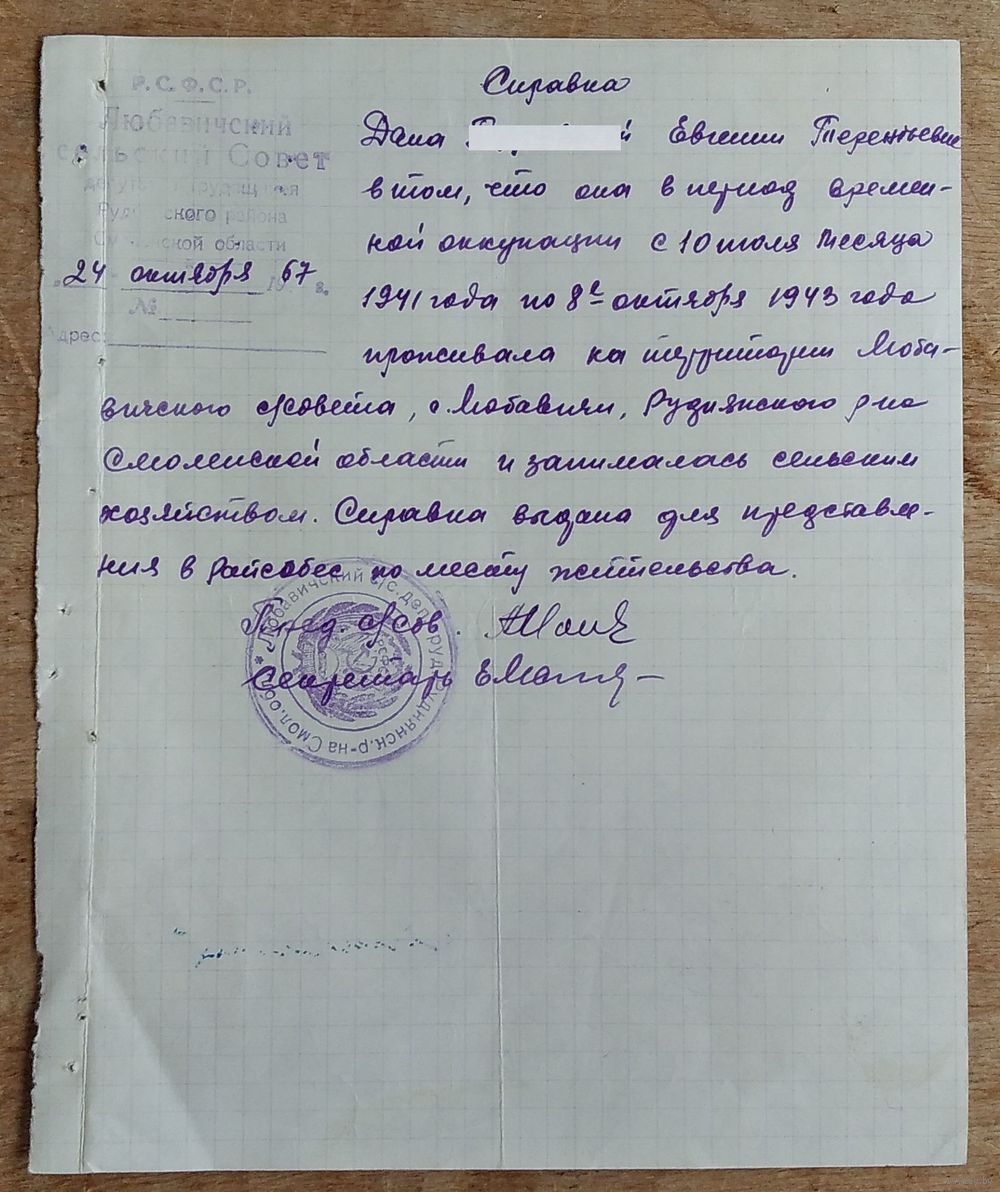 Р.С.Ф.С.Р.
Любавичский
сельский Совет
депутатов трудящихся
Руднянского района
Смоленской области
"24" октября 1967 г.
№
Адрес:
Справка
Дана Евгении Терентьевне
в том, что она в период времен-
ной оккупации с 10 июля месяца
1941 года по 8е октября 1943 года
проживала на территории Люба-
вичского с/совета, с. Любавичи, Руднянского р-на
Смоленской области и занималась сельским
хозяйством. Справка выдана для представле-
ния в Райсобес по месту жительства.
Пред. с/сов.
Секретарь
Любавичский с/с. деп. труд. Руднянск. р-на Смол. обл.